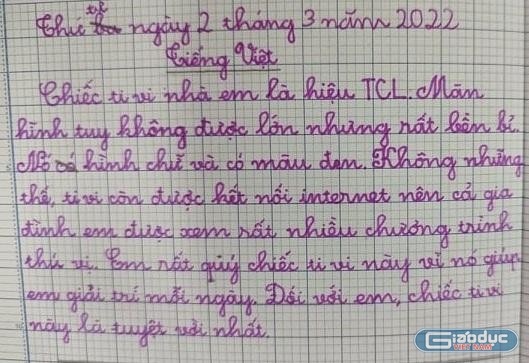 Thứ tư ngày 2 tháng 3 năm 2022
Tiếng Việt
Chiếc ti vi nhà em là hiệu TCL. Màn
hình tuy không được lớn nhưng rất bền bỉ.
Nó có hình chữ và có màu đen. Không những
thế, ti vi còn được kết nối internet nên cả gia
đình em được xem rất nhiều chương trình
thú vị. Em rất quý chiếc ti vi này vì nó giúp
em giải trí mỗi ngày. Đối với em, chiếc ti vi
này là tuyệt vời nhất.
Giáo dục
VIỆT NAM